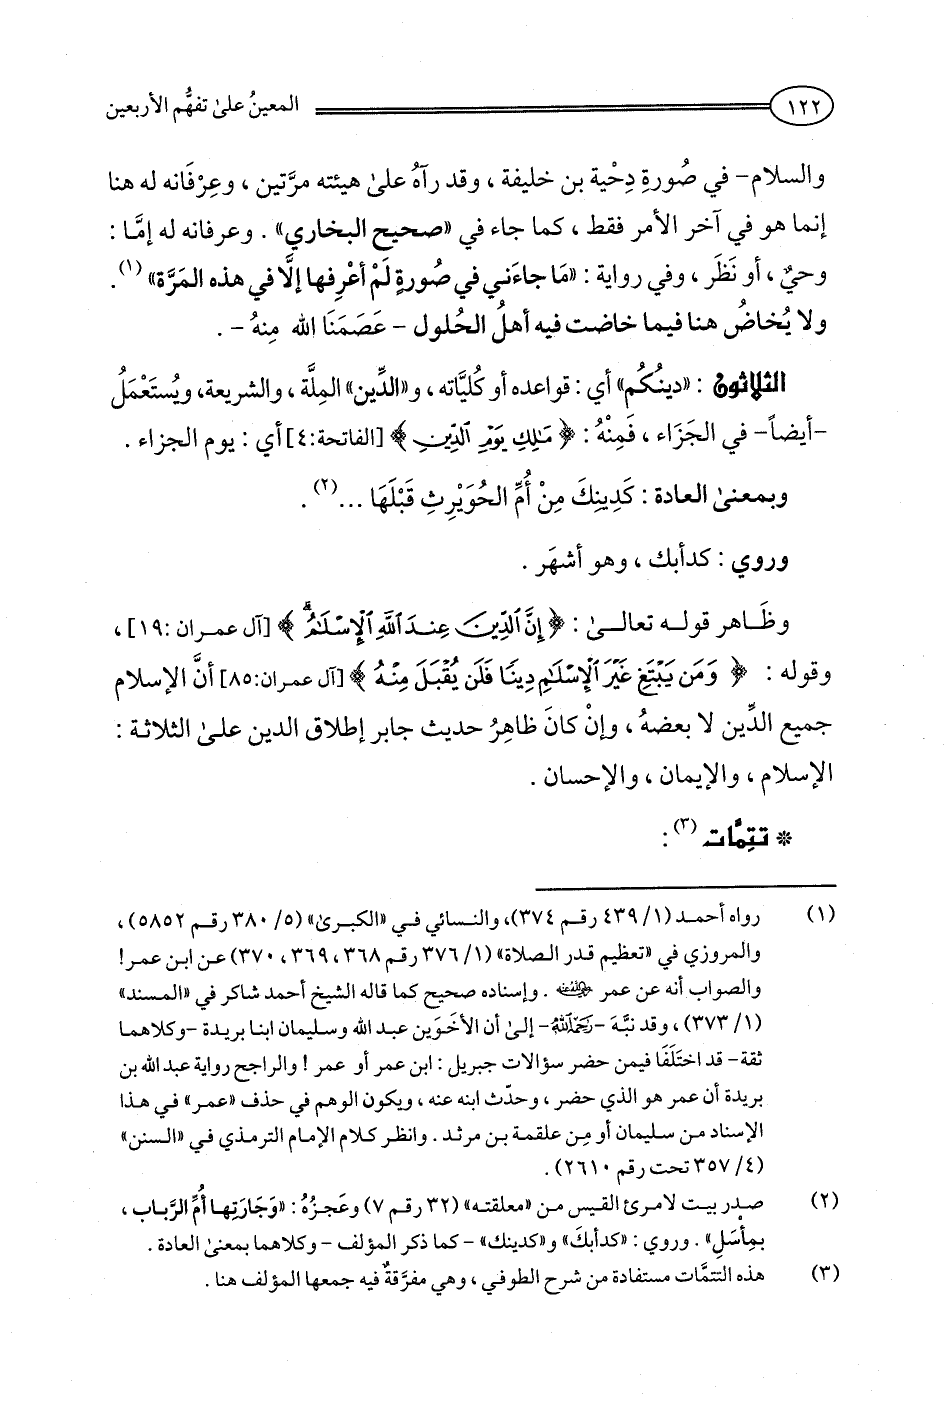 ١٢٢ المعينُ على تفهُّم الأربعين
والسلام- في صُورةِ دِحْية بن خليفة ، وقد رآهُ على هيئته مرَّتين ، وعِرْفَانه له هنا
إنما هو في آخر الأمر فقط ، كما جاء في «صحيح البخاري» . وعرفانه له إمَّا :
وحيٌ ، أو نَظَر ، وفي رواية : «مَا جاءَني في صُورةٍ لَمْ أعْرِفها إلَّا في هذه المَرَّة» (١).
ولا يُخاضُ هنا فيما خاضت فيه أهلُ الحُلول - عَصَمَنَا الله مِنهُ - .
الثلاثون : «دينُكُم» أي : قواعده أو كُلِّيَّاته ، و«الدِّين» المِلَّة ، والشريعة، ويُستَعْمَلُ
-أيضاً- في الجَزَاء ، فَمِنْهُ : ﴿ مَٰلِكِ يَوْمِ ٱلدِّينِ ﴾ [الفاتحة:٤] أي : يوم الجزاء .
وبمعنى العادة : كَدِينِكَ مِنْ أُمِّ الحُوَيْرِثِ قَبْلَهَا ...(٢) .
وروي : كدأبك ، وهو أشهَر .
وظَاهر قوله تعالى : ﴿ إِنَّ ٱلدِّينَ عِندَ ٱللَّهِ ٱلْإِسْلَٰمُ ۗ ﴾ [آل عمران :١٩] ،
وقوله : ﴿ وَمَن يَبْتَغِ غَيْرَ ٱلْإِسْلَٰمِ دِينًا فَلَن يُقْبَلَ مِنْهُ ﴾ [آل عمران:٨٥] أنَّ الإسلام
جميع الدِّين لا بعضهُ ، وإنْ كانَ ظاهِرُ حديث جابر إطلاق الدين على الثلاثة :
الإسلام ، والإيمان ، والإحسان .
* تتِمَّات (٣) :
(١) رواه أحمد (١/ ٤٣٩ رقم ٣٧٤)، والنسائي في «الكبرى» (٥/ ٣٨٠ رقم ٥٨٥٢) ،
والمروزي في «تعظيم قدر الصلاة» (١/ ٣٧٦ رقم ٣٦٨ ، ٣٦٩ ، ٣٧٠) عن ابن عمر !
والصواب أنه عن عمر رضي الله عنه . وإسناده صحيح كما قاله الشيخ أحمد شاكر في «المسند»
(١/ ٣٧٣) ، وقد نبَّهَ -رَحِمَهُ اللهُ- إلى أن الأخَوَين عبد الله وسليمان ابنا بريدة -وكلاهما
ثقة- قد اختَلَفَا فيمن حضر سؤالات جبريل : ابن عمر أو عمر ! والراجح رواية عبد الله بن
بريدة أن عمر هو الذي حضر ، وحدّث ابنه عنه ، ويكون الوهم في حذف «عمر» في هذا
الإسناد من سليمان أو مِن علقمة بن مرثد . وانظر كلام الإمام الترمذي في «السنن»
(٤/ ٣٥٧ تحت رقم ٢٦١٠) .
(٢) صدر بيت لامرئ القيس من «معلقته» (٣٢ رقم ٧) وعَجزُهُ : «وَجَارَتِها أُمِّ الرَّباب ،
بمأسَلِ» . وروي : «كدأبكَ» و«كدينك» - كما ذكر المؤلف - وكلاهما بمعنى العادة .
(٣) هذه التتمَّات مستفادة من شرح الطوفي ، وهي مفرَّقةٌ فيه جمعها المؤلف هنا .